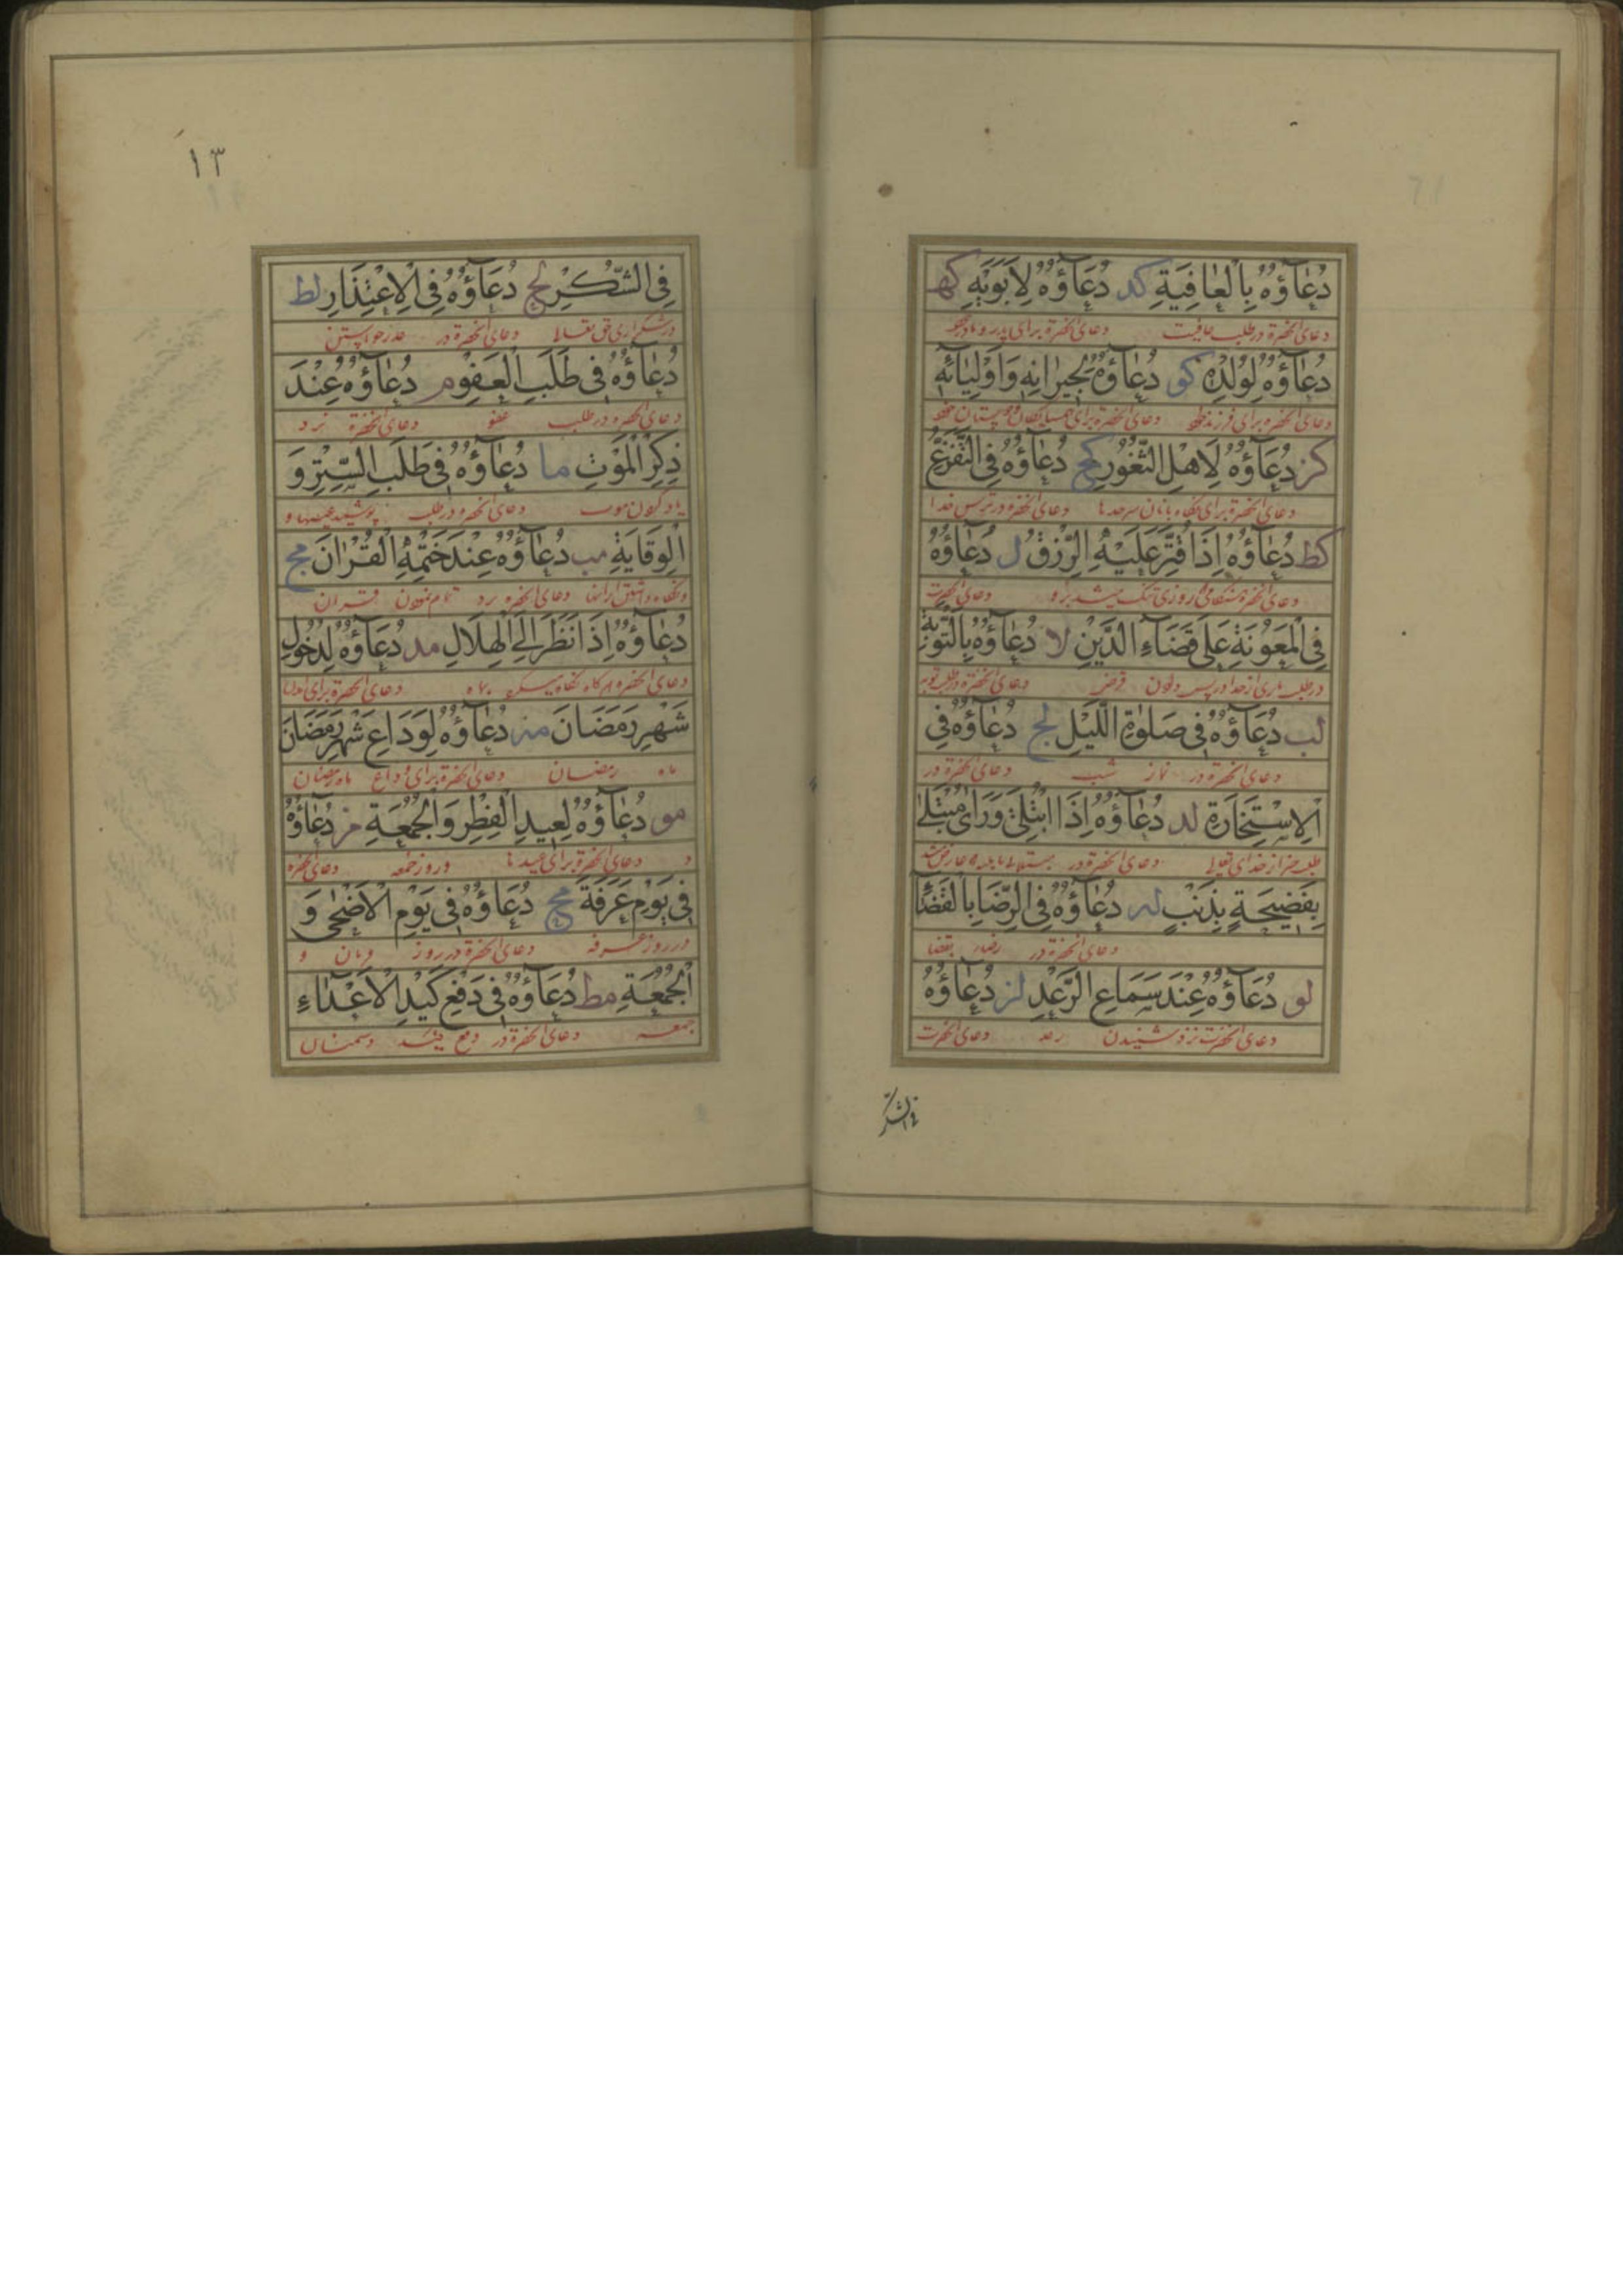 دُعَاؤُهُ بِالْعَافِيَةِ كد دُعَاؤُهُ لِاَبَوَيْهِ كه
دعای آنحضرة در طلب عافیت دعای آنحضرة برای پدر و مادر خود
دُعَاؤُهُ لِوُلْدِهِ كو دُعَاؤُهُ لِجِيرَانِهِ وَاَوْلِيَائِهِ
دعای آنحضرة برای فرزند دعای آنحضرة برای همسایگان و دوستان خود
كز دُعَاؤُهُ لِاَهْلِ الثُّغُورِ كح دُعَاؤُهُ فِي التَّفَزُّعِ
دعای آنحضرة برای نگاه بانان سرحدها دعای آنحضرة در ترس خدا
كط دُعَاؤُهُ اِذَا قُتِّرَ عَلَيْهِ الرِّزْقُ ل دُعَاؤُهُ
دعای آنحضرة هنگامی روزی تنگ میشد بر او دعای آنحضرت
فِي الْمَعُونَةِ عَلَى قَضَاءِ الدَّيْنِ لا دُعَاؤُهُ بِالتَّوْبَةِ
در طلب یاری از خدا در پس دادن قرض دعای آنحضرة در طلب توبه
لب دُعَاؤُهُ فِي صَلٰوةِ اللَّيْلِ لج دُعَاؤُهُ فِي
دعای آنحضرة در نماز شب دعای آنحضرة در
الْاِسْتِخَارَةِ لد دُعَاؤُهُ اِذَا ابْتُلِيَ وَرَاٰى مُبْتَلًى
طلب خیر از خدای تعالی دعای آنحضرة در
بِفَضِيحَةٍ بِذَنْبٍ له دُعَاؤُهُ فِي الرِّضَا بِالْقَضَاءِ
دعای آنحضرة در رضا بقضا
لو دُعَاؤُهُ عِنْدَ سَمَاعِ الرَّعْدِ لز دُعَاؤُهُ
دعای آنحضرت نزد شنیدن رعد دعای آنحضرت
فی الشکر
١٣
فِي الشُّكْرِ لح دُعَاؤُهُ فِي الْاِعْتِذَارِ لط
در شکرگزاری حق تعالی دعای آنحضرة در عذر خواستن
دُعَاؤُهُ فِي طَلَبِ الْعَفْوِ م دُعَاؤُهُ عِنْدَ
دعای آنحضرة در طلب عفو دعای آنحضرة نزد
ذِكْرِ الْمَوْتِ ما دُعَاؤُهُ فِي طَلَبِ السِّتْرِ وَ
یاد کردن موت دعای آنحضرة در طلب پوشیدن عیبها و
الْوِقَايَةِ مب دُعَاؤُهُ عِنْدَ خَتْمِهِ الْقُرْاٰنَ مج
و نگاه داشتن از آنها دعای آنحضرة نزد تمام نمودن قران
دُعَاؤُهُ اِذَا نَظَرَ اِلَى الْهِلَالِ مد دُعَاؤُهُ لِدُخُولِ
دعای آنحضرة هر گاه نگاه میکرد بماه دعای آنحضرة برای
شَهْرِ رَمَضَانَ مه دُعَاؤُهُ لِوَدَاعِ شَهْرِ رَمَضَانَ
ماه رمضان دعای آنحضرة برای وداع ماه رمضان
مو دُعَاؤُهُ لِعِيدِ الْفِطْرِ وَالْجُمُعَةِ مز دُعَاؤُهُ
دعای آنحضرة برای عیدها و روز جمعه دعای آنحضرة
فِي يَوْمِ عَرَفَةَ مح دُعَاؤُهُ فِي يَوْمِ الْاَضْحٰى وَ
در روز عرفه دعای آنحضرة در روز قربان و
الْجُمُعَةِ مط دُعَاؤُهُ فِي دَفْعِ كَيْدِ الْاَعْدَاءِ
جمعه دعای آنحضرة در دفع دشمنان